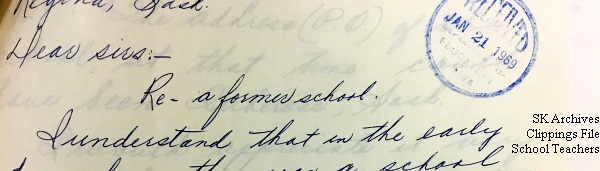 Regina, Sask.
Dear sirs:-
Re- a former school.
I understand that in the early
there was a school
RECEIVED
JAN 21 1969
SK Archives
Clippings File
School Teachers